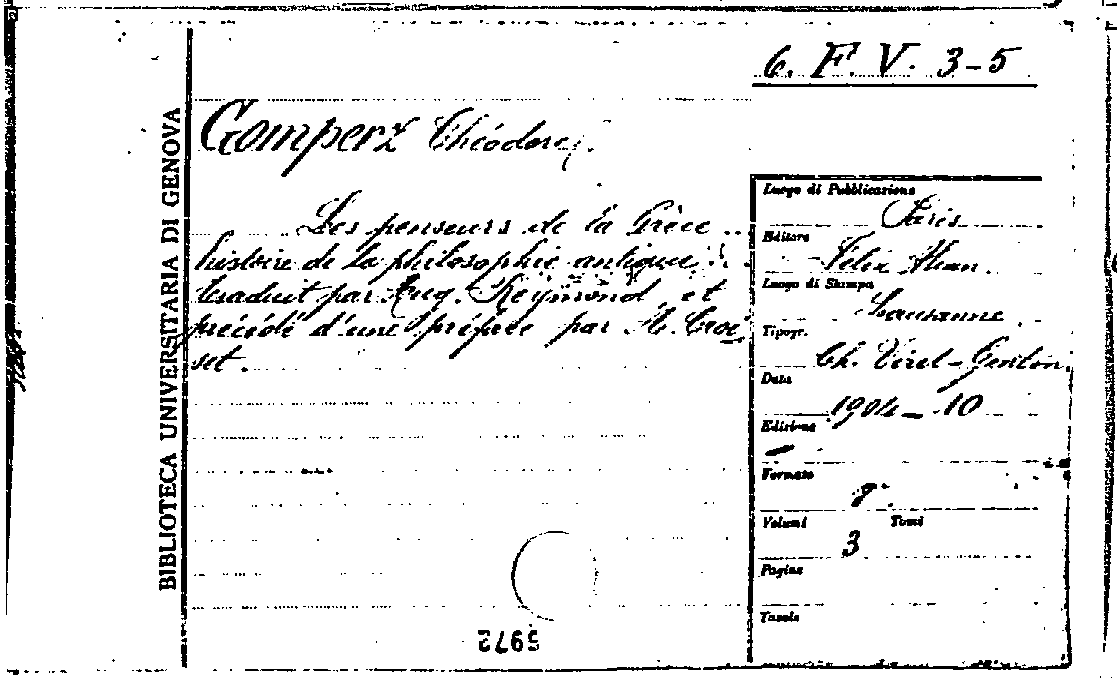 6. F. V. 3-5
BIBLIOTECA UNIVERSITARIA DI GENOVA
Gomperz Théodore.
Les penseurs de la Grèce
histoire de la philosophie antique
traduit par Aug. Reymond, et
précédé d'une préface par A. Croi
set.
Luogo di Pubblicazione
Paris
Editore
Félix Alcan.
Luogo di Stampa
Lausanne
Tipogr.
Ch. Viret-Genton.
Data
1904-10
Edizione
-
Formato
8°
Volumi Tomi
3
Pagine
Tavole
5972